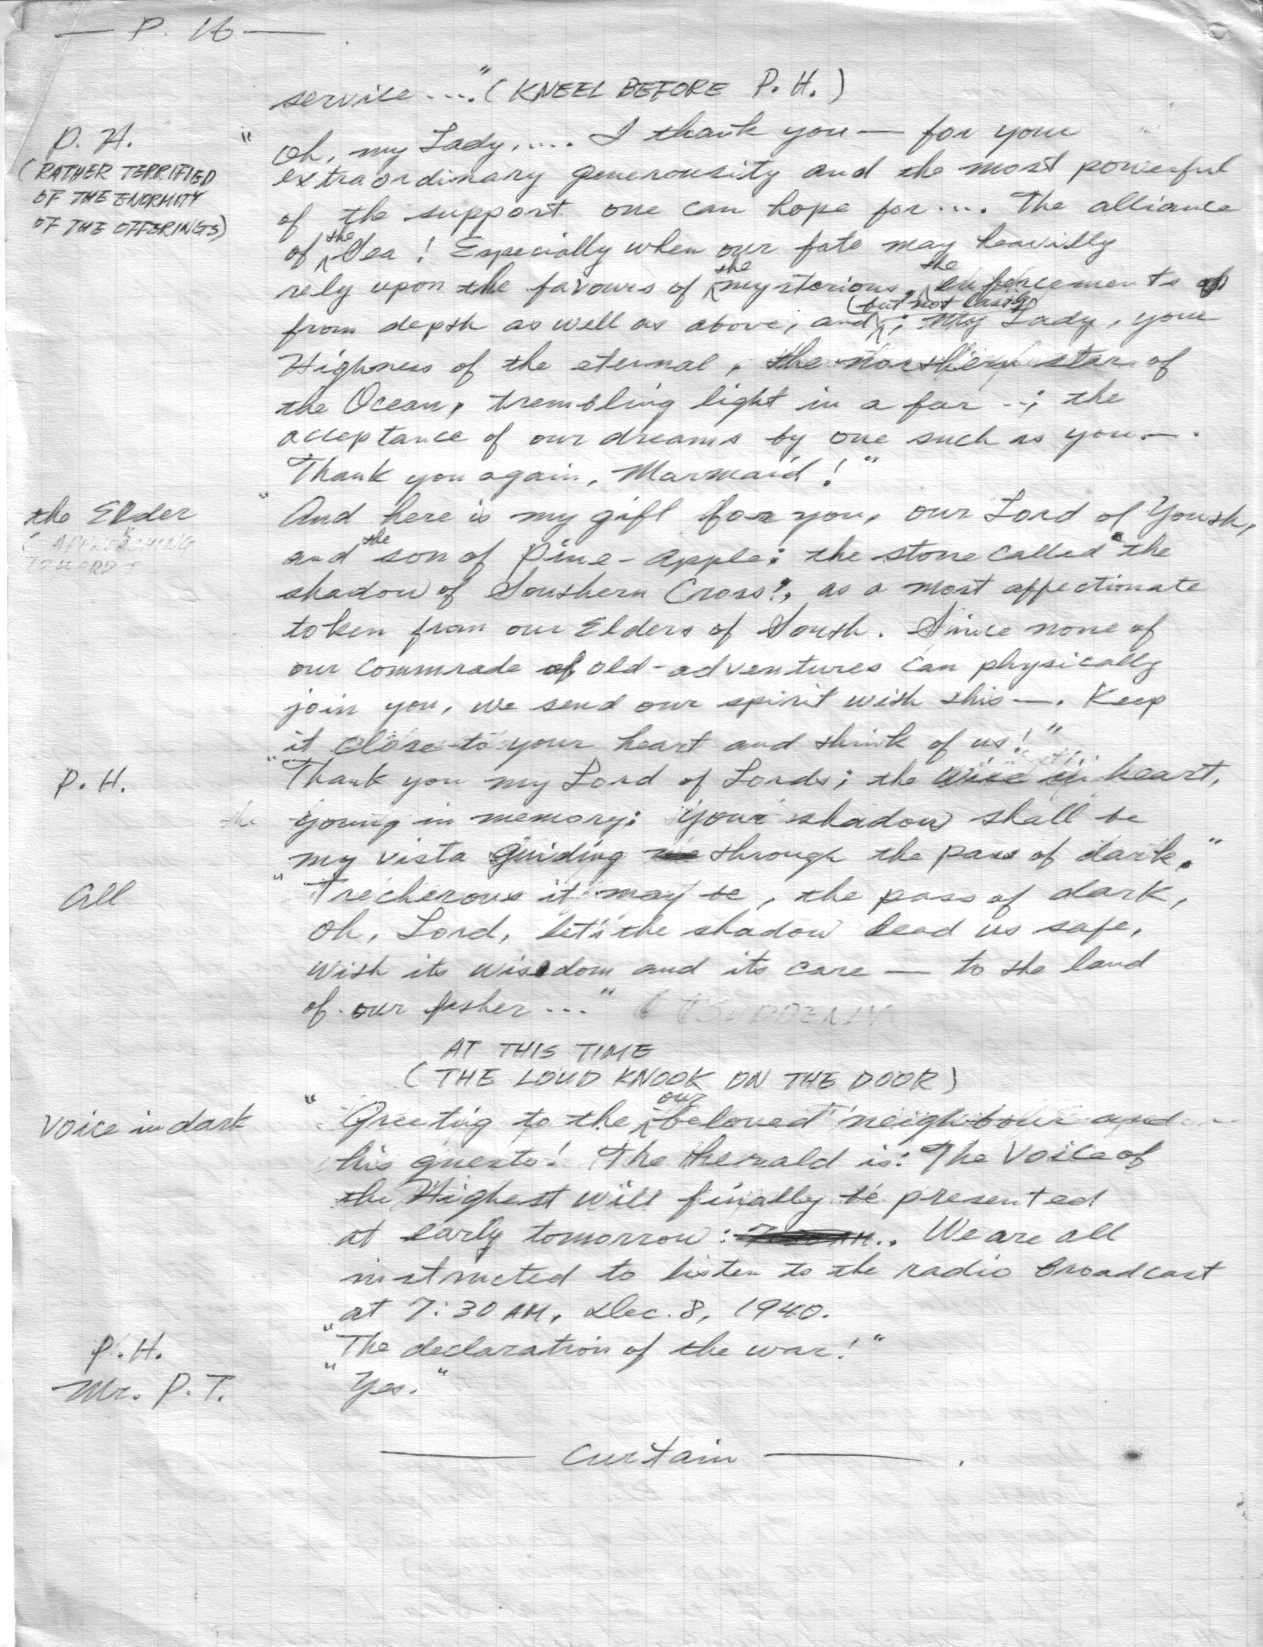 — P. 16 —
service ...." (KNEEL BEFORE P. H.)
P. H. "Oh, my Lady, .... I thank you — for your
(RATHER TERRIFIED extraordinary generousity and the most powerful
OF THE ENORMITY of the support one can hope for .... The alliance
OF THE OFFERINGS) of the Sea! Especially when our fate may heavilly
rely upon the favours of the mysterious, the enforcements
from depth as well as above, and (but not lastly), My Lady, your
Highness of the eternal, the northern star of
the Ocean, trembling light in a far --; the
acceptance of our dreams by one such as you —.
Thank you again, Marmaid!"
the Elder "And here is my gift for you, our Lord of Youth,
(APPROACHING and the son of Pine-apple: the stone called "the
TOWARDS shadow of Southern Cross", as a most affectionate
token from our Elders of South. Since none of
our commrade of old-adventures can physically
join you, we send our spirit with this —. Keep
it close to your heart and think of us!"
P. H. "Thank you my Lord of Lords; the wise in heart,
the young in memory: your shadow shall be
my vista guiding through the pass of dark."
All "Trecherous it may be, the pass of dark,
Oh, Lord, let the shadow lead us safe,
with its wisdom and its care — to the land
of our father ..." (SUDDENLY
AT THIS TIME
(THE LOUD KNOOK ON THE DOOR)
Voice in dark "Greeting to the our beloved neighbour and
his guests! The Herald is: The Voice of
the Highest will finally be presented
at early tomorrow: We are all
instructed to listen to the radio broadcast
at 7:30 AM, Dec. 8, 1940.
P. H. "The declaration of the war!"
Mr. P. T. "Yes."
— Curtain — .